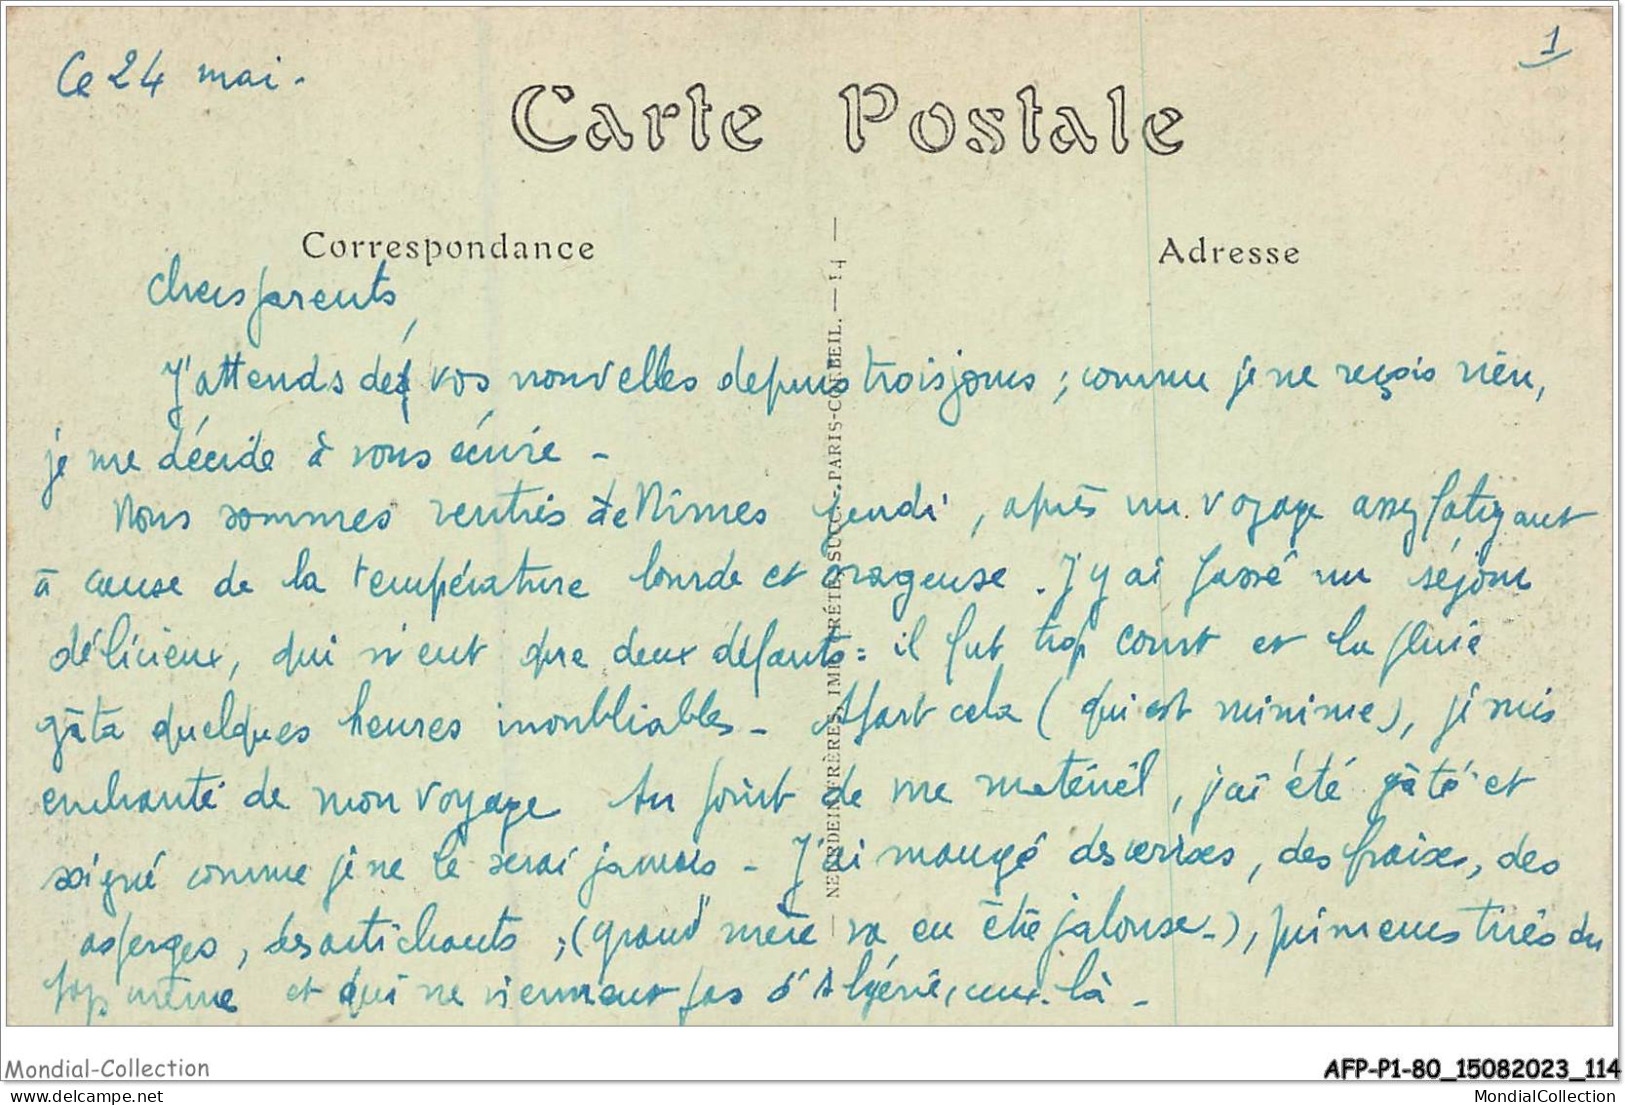 Ce 24 mai.
1
Carte Postale
Correspondance
Adresse
Chers parents,
J'attends de vos nouvelles depuis trois jours ; comme je ne reçois rien,
je me décide à vous écrire -
Nous sommes rentrés de Nîmes jeudi, après un voyage assez fatigant
à cause de la température lourde et orageuse. J'y ai passé un séjour
délicieux, qui n'eut que deux défauts : il fut trop court et la pluie
gâta quelques heures inoubliables - A part cela (qui est minime), je suis
enchanté de mon voyage Au point de vue matériel, j'ai été gâté et
soigné comme je ne le serai jamais - J'ai mangé des cerises, des fraises, des
asperges, des artichauts, (grand'mère va en être jalouse -), primeurs tirés du
pays même et qui ne viennent pas d'Algérie, ceux-là -
NEURDEIN FRÈRES, IMP. CRÉTÉ, SUCC. - PARIS-CORBEIL. - 14 -
Mondial-Collection
AFP-P1-80_15082023_114
delcampe.net
MondialCollection